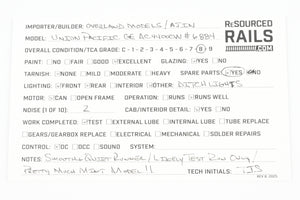 IMPORTER/BUILDER: OVERLAND MODELS / AJIN
RESOURCED
RAILS
.COM
MODEL: UNION PACIFIC GE AC4400CW #6884
OVERALL CONDITION/TCA GRADE: C - 1 - 2 - 3 - 4 - 5 - 6 - 7 - 8 - 9
PAINT: NO FAIR GOOD EXCELLENT GLAZING: YES NO
TARNISH: NONE MILD MODERATE HEAVY SPARE PARTS: YES NO
LIGHTING: FRONT REAR INTERIOR OTHER: DITCHLIGHTS
MOTOR: CAN OPEN FRAME OPERATION: RUNS RUNS WELL
NOISE [1 OF 10]: 2 CAB/INTERIOR DETAIL: YES NO
WORK COMPLETED: TEST EXTERNAL LUBE INTERNAL LUBE TUBE REPLACE
GEARS/GEARBOX REPLACE ELECTRICAL MECHANICAL SOLDER REPAIRS
CONTROL: DC DCC SOUND SYSTEM:
NOTES: SMOOTH & QUIET RUNNER / LIKELY TEST RUN ONLY /
PRETTY MUCH MINT MODEL!!
TECH INITIALS: TJS